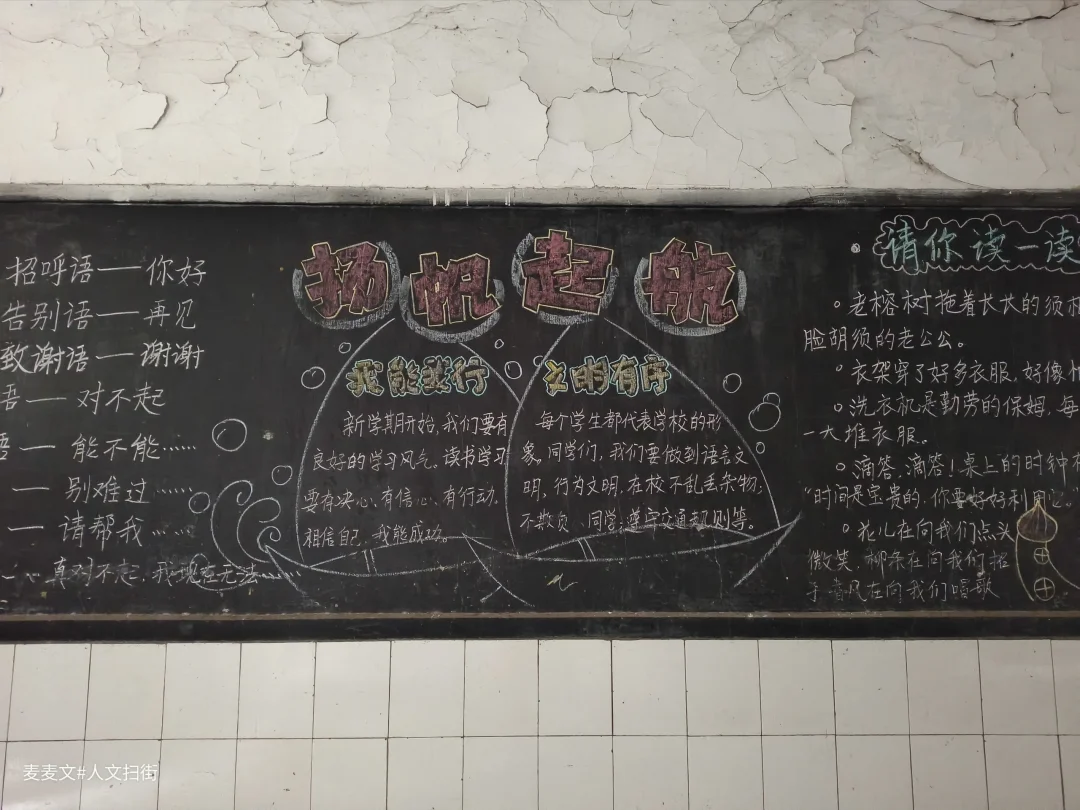 招呼语——你好
告别语——再见
致谢语——谢谢
语——对不起
语——能不能……
——别难过……
——请帮我……
真对不起,我现在无法……
扬帆起航
我能我行
新学期开始,我们要有
良好的学习风气。读书学习
要有决心、有信心、有行动,
相信自己,我能成功。
文明有序
每个学生都代表学校的形
象。同学们,我们要做到语言文
明,行为文明,在校不乱丢杂物;
不欺负 同学;遵守交通规则等。
请你读一读
老榕树拖着长长的须
脸胡须的老公公。
衣架穿了好多衣服,好像
洗衣机是勤劳的保姆,每
一大堆衣服。
滴答,滴答!桌上的时钟在
“时间是宝贵的,你要好好利用
花儿在向我们点头
微笑 柳条在向我们招
手 春风在向我们唱歌
麦麦文#人文扫街